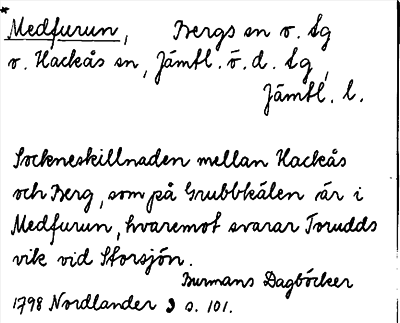 *
Medfurun, Bergs sn o. tg
o. Hackås sn, Jämtl. ö. d. tg,
Jämtl. l.
Sockneskillnaden mellan Hackås
och Berg, som på Grubbkälen är i
Medfurun, hvaremot svarar Torudds
vik vid Storsjön.
Burmans Dagböcker
1798 Nordlander s. 101.